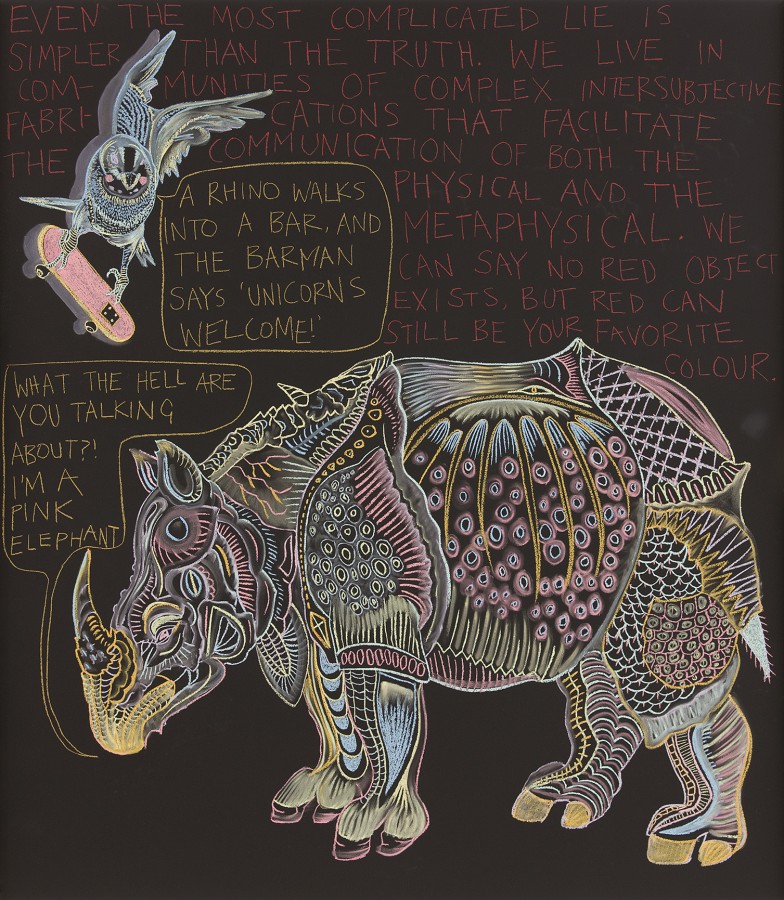 EVEN THE MOST COMPLICATED LIE IS
SIMPLER THAN THE TRUTH. WE LIVE IN
COM- MUNITIES OF COMPLEX INTERSUBJECTIVE
FABRI- CATIONS THAT FACILITATE
THE COMMUNICATION OF BOTH THE
PHYSICAL AND THE
METAPHYSICAL. WE
CAN SAY NO RED OBJECT
EXISTS, BUT RED CAN
STILL BE YOUR FAVORITE
COLOUR.
A RHINO WALKS
INTO A BAR, AND
THE BARMAN
SAYS 'UNICORNS
WELCOME!'
WHAT THE HELL ARE
YOU TALKING
ABOUT?!
I'M A
PINK
ELEPHANT